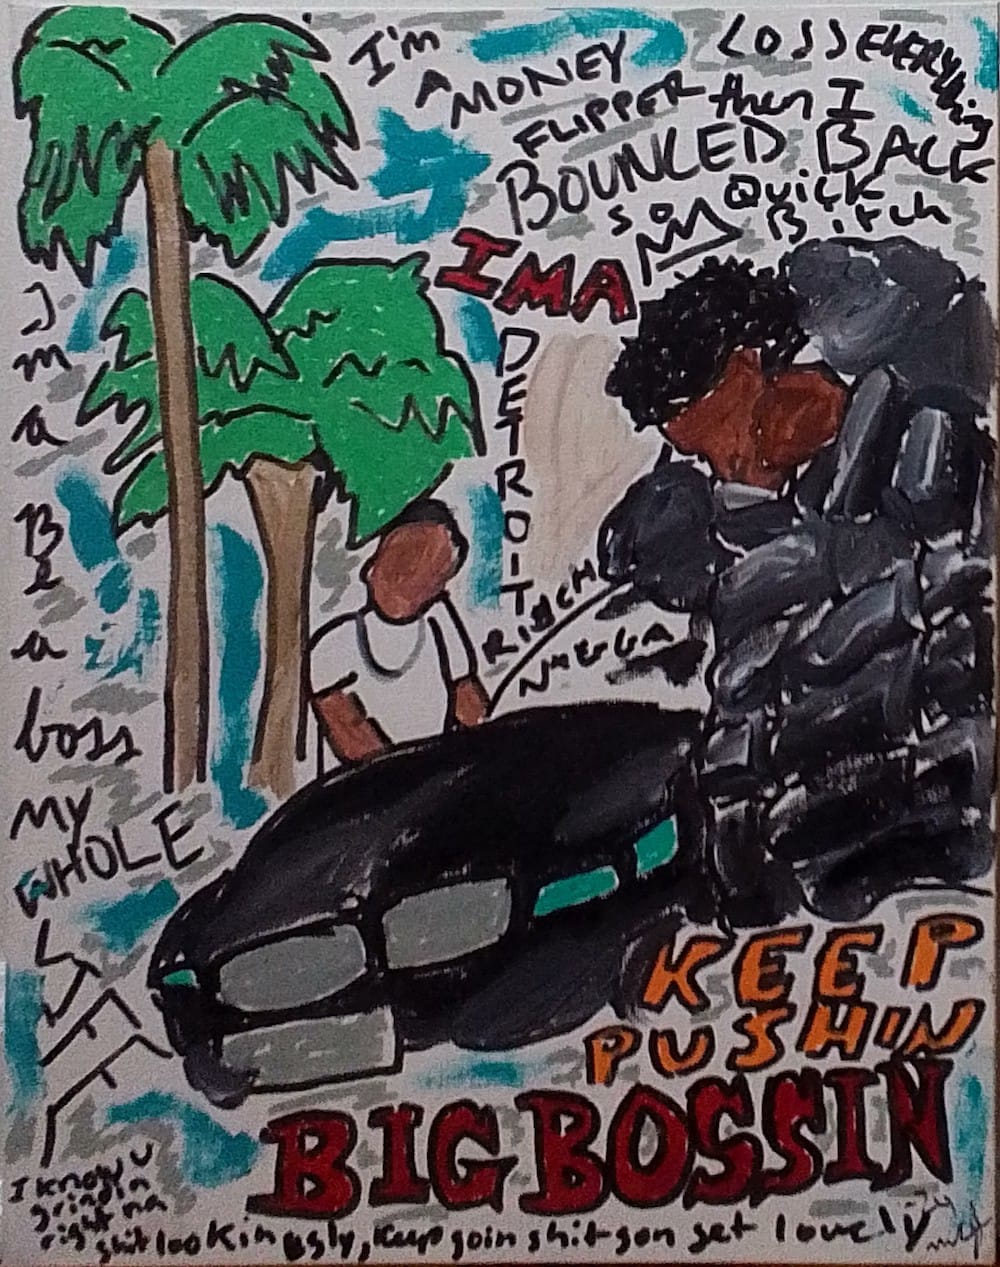 I'm
A MONEY
FLIPPER
LOSS EVERYthing
then I
BOUNCED BACK
SO Quick
Bitch
IMA
DETROIT
RICH
NIGGA
Ima
Be
a
boss
My
WHOLE
LIFE
KEEP
PUSHIN
BIG BOSSIN
I know u
grindin
right na
shit lookin ugly, keep goin shit gon get lovely